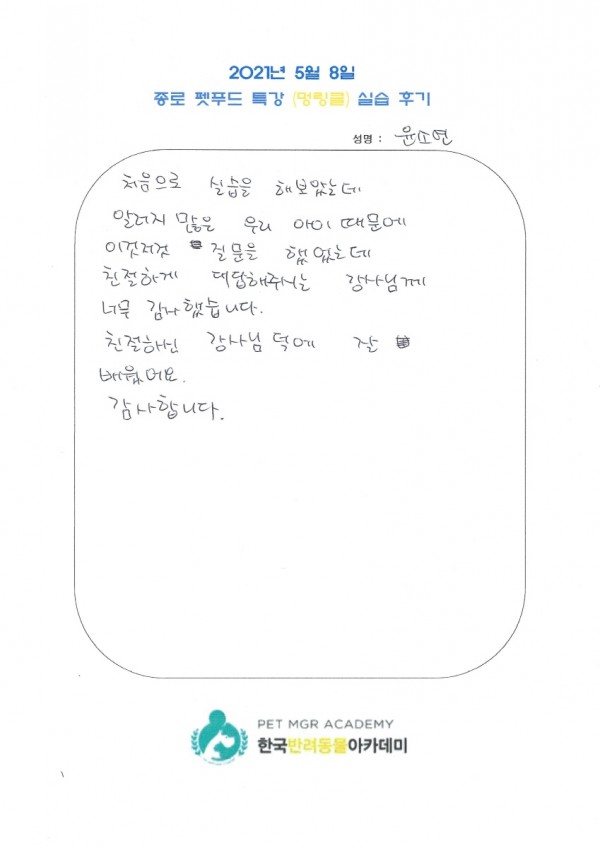 2021년 5월 8일
종로 펫푸드 특강 (멍링클) 실습 후기
성명 : 윤소연
처음으로 실습을 해보았는데
알러지 많은 우리 아이 때문에
이것저것 질문을 했었는데
친절하게 대답해주시는 강사님께
너무 감사했습니다.
친절하신 강사님 덕에 잘
배웠어요.
감사합니다.
PET MGR ACADEMY
한국반려동물아카데미